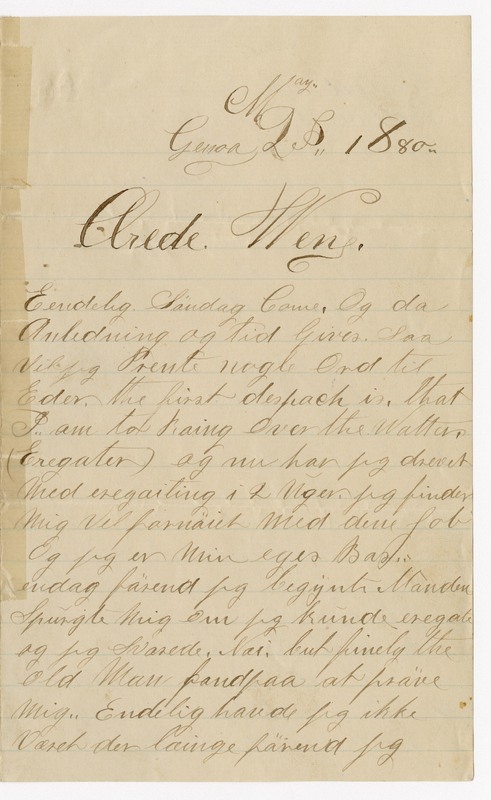 May.
Genoa 23,, 1880,,
Ærede. Wen,.
Eendelig Söndag Come, Og da
Anledning og tid Gives. Saa
vil jeg Prente nogle Ord til
Eder, the first despach is, that
I. am to Raing Over the Watter,
(Eregater) og nu har jeg drevet
Med eregaiting i 2 Uger, jeg finder
Mig Vel fornäiet Med dene Job
Og jeg er Min eges Bas,.
endag färend jeg begÿnte Manden
Spurgte Mig Om jeg Kunde eregate
og jeg Svarede. Nai. but finely the
Old Man fandpaa at präve
Mig,. Endelig havde jeg ikke
Været der läinge färend jeg